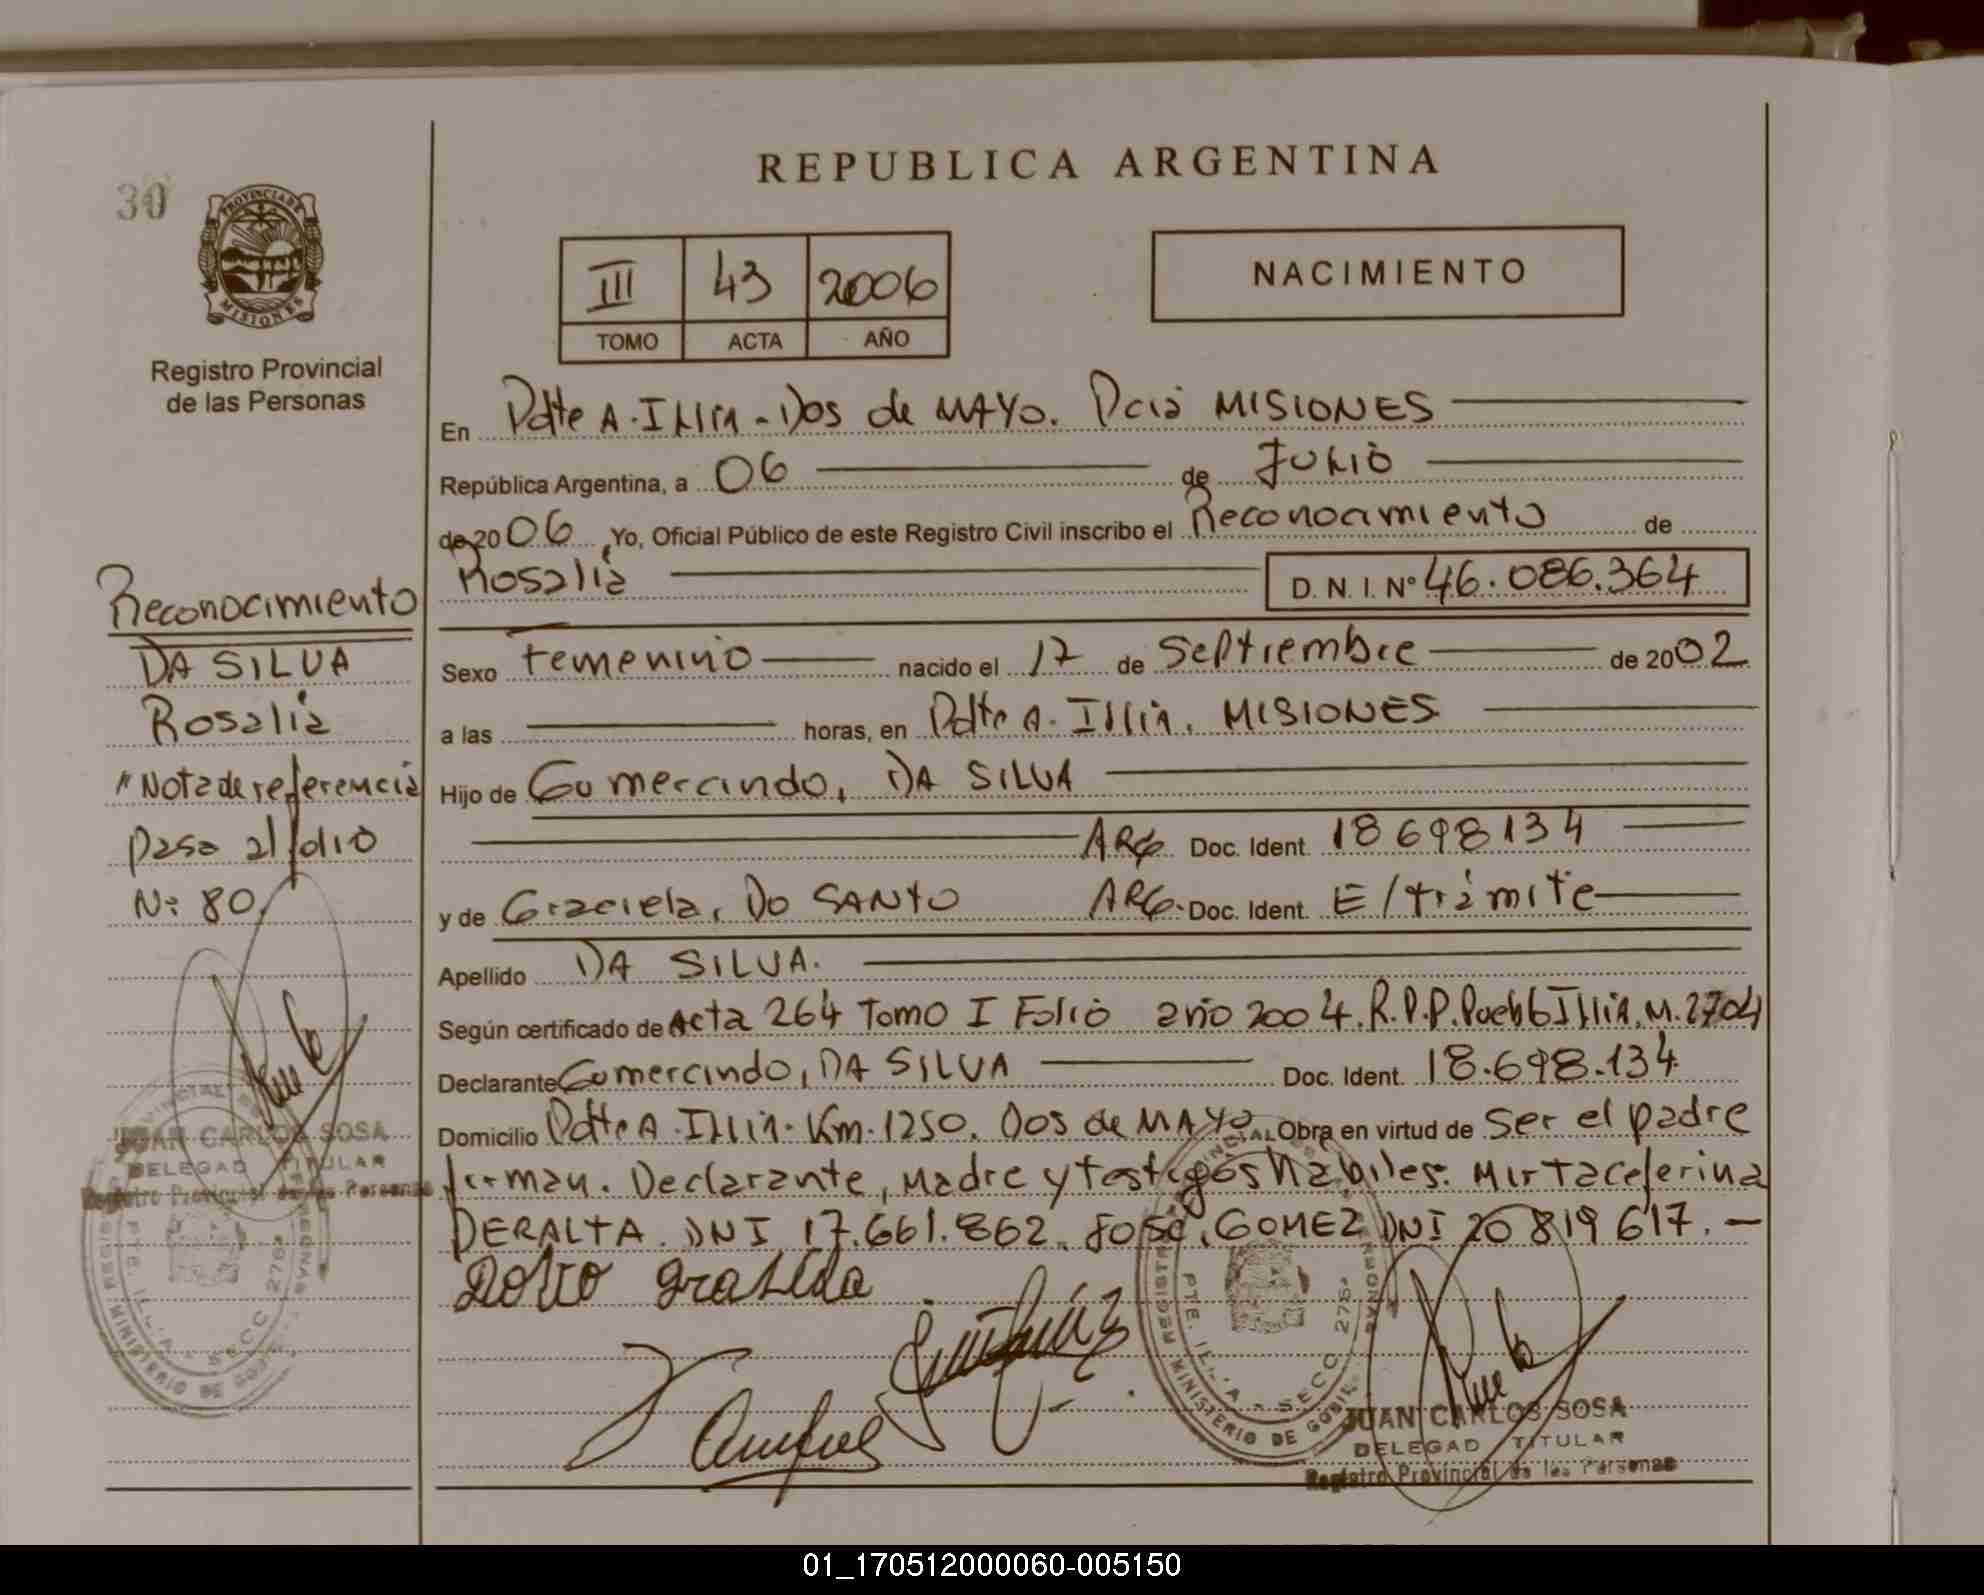 30
PROVINCIA DE
MISIONES
Registro Provincial
de las Personas
REPUBLICA ARGENTINA
III 43 2006
TOMO ACTA AÑO
NACIMIENTO
En Pdte A. Illia - Dos de MAYO. Pcia MISIONES
República Argentina, a 06 de Julio
de 2006 Yo, Oficial Público de este Registro Civil inscribo el Reconocimiento de
Rosalia D. N. I. Nº 46.086.364
Sexo Femenino nacido el 17 de Septiembre de 2002
a las horas, en Pdte A. Illia. MISIONES
Hijo de Gumercindo, DA SILVA
ARG Doc. Ident. 18698134
y de Graciela, DO SANTO ARG. Doc. Ident. E/trámite
Apellido DA SILVA.
Según certificado de Acta 264 Tomo I Folio año 2004. R.P.P. Illia. M. 2704
Declarante Gumercindo, DA SILVA Doc. Ident. 18.698.134
Domicilio Pdte A. Illia. Km. 1250. Dos de MAYO Obra en virtud de Ser el padre
firman. Declarante, Madre y testigos hábiles: Mirta Ceferina
PERALTA. DNI 17.661.862. José, GOMEZ DNI 20 819 617. -
Reconocimiento
DA SILVA
Rosalia
"Nota de referencia
pasa al folio
Nº 80.
JUAN CARLOS SOSA
DELEGAD TITULAR
Registro Provincial de las Personas
MINISTERIO DE
SECC 276ª
JUAN CARLOS SOSA
DELEGAD TITULAR
Registro Provincial de las Personas
01_170512000060-005150